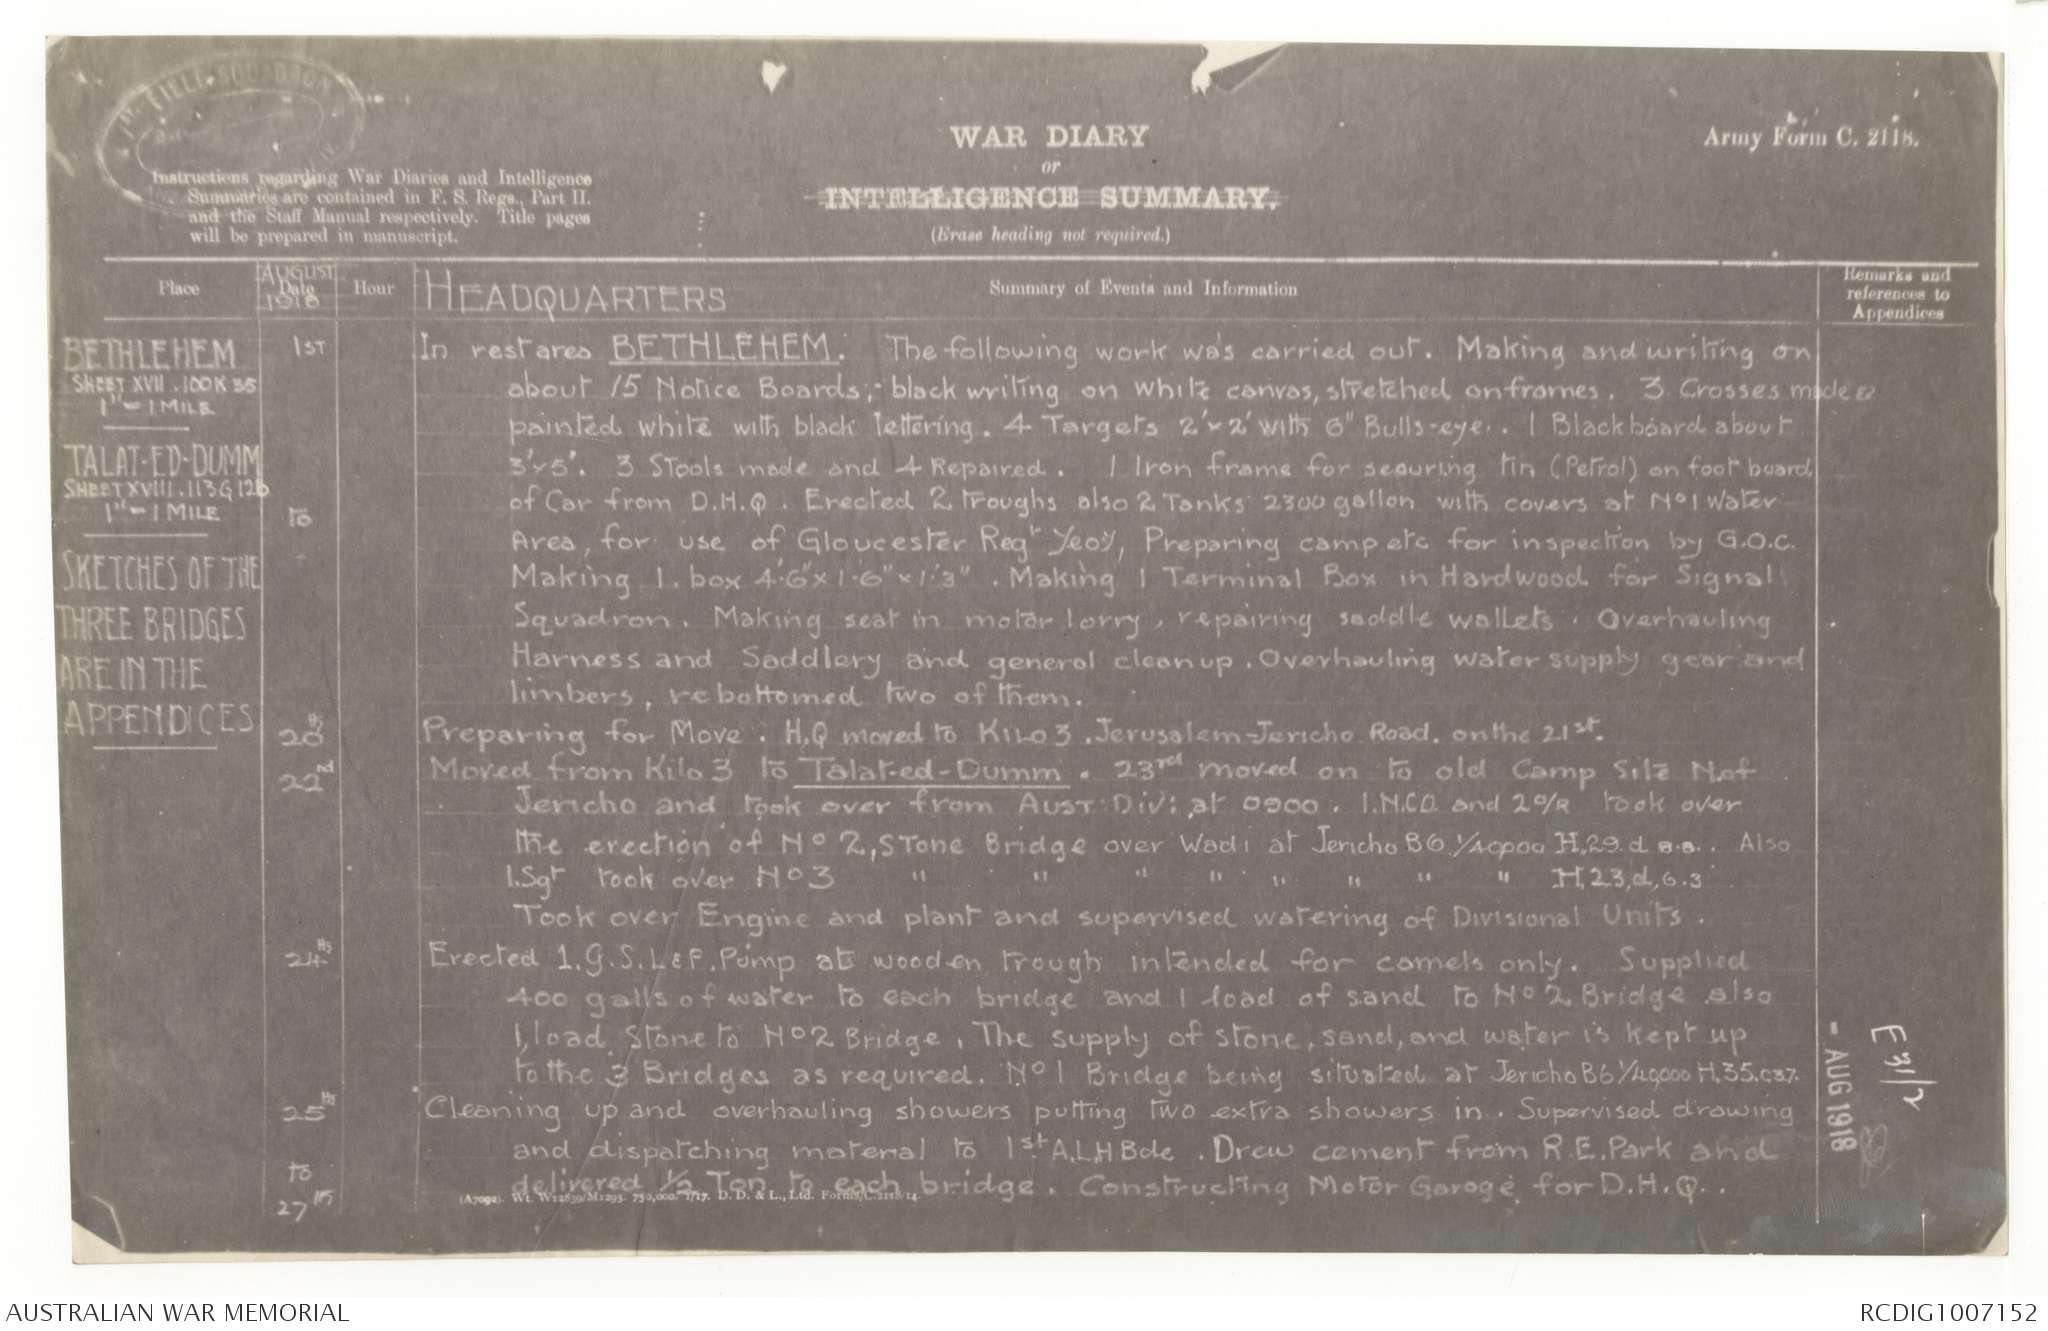 1ST FIELD SQUADRON
WAR DIARY
or
INTELLIGENCE SUMMARY.
(Erase heading not required.)
Army Form C. 2118.
Instructions regarding War Diaries and Intelligence
Summaries are contained in F. S. Regs., Part II.
and the Staff Manual respectively. Title pages
will be prepared in manuscript.
Place
AUGUST
Date
1918
Hour
HEADQUARTERS
Summary of Events and Information
Remarks and
references to
Appendices
BETHLEHEM
SHEET XVII . 100 K 35
1" = 1 MILE
TALAT-ED-DUMM
SHEET XVIII . 113 G 12b
1" = 1 MILE
SKETCHES OF THE
THREE BRIDGES
ARE IN THE
APPENDICES
1ST
In rest area BETHLEHEM. The following work was carried out. Making and writing on
about 15 Notice Boards;- black writing on white canvas, stretched on frames. 3 Crosses made &
painted white with black lettering. 4 Targets 2'x2' with 6" Bulls-eye. 1 Blackboard about
3'x5'. 3 Stools made and 4 Repaired. 1 Iron frame for securing tin (Petrol) on foot board
to
of Car from D.H.Q. Erected 2 troughs also 2 Tanks 2300 gallon with covers at No 1 Water
Area, for use of Gloucester Regt Yeoy, Preparing camp etc for inspection by G.O.C.
Making 1. box 4'.6" x 1'.6" x 1'.3". Making 1 Terminal Box in Hardwood for Signal
Squadron. Making seat in motor lorry, repairing saddle wallets. Overhauling
Harness and Saddlery and general clean up. Overhauling water supply gear and
limbers, rebottomed two of them.
20th
Preparing for Move. H.Q moved to Kilo 3. Jerusalem-Jericho Road. on the 21st.
22nd
Moved from Kilo 3 to Talat-ed-Dumm. 23rd moved on to old Camp Site N. of
Jericho and took over from Aust: Div: at 0900. 1.N.C.O and 2 O/R took over
the erection of No 2, Stone Bridge over Wadi at Jericho B6 1/40000 H,29.d 8.8. Also
1.Sgt took over No 3 " " " " " " " " H,23,d,6.3
Took over Engine and plant and supervised watering of Divisional Units.
24th
Erected 1.G.S.L&F. Pump at wooden trough intended for camels only. Supplied
400 galls of water to each bridge and 1 load of sand to No 2 Bridge also
1, load Stone to No 2 Bridge. The supply of stone, sand, and water is kept up
to the 3 Bridges as required. No 1 Bridge being situated at Jericho B6 1/40000 H,35.c37.
25th
Cleaning up and overhauling showers putting two extra showers in. Supervised drawing
and dispatching material to 1st A.L.H Bde. Drew cement from R.E. Park and
to
27th
delivered 1/2 Ton to each bridge. Constructing Motor Garage for D.H.Q.
(A7092). Wt. W12839/M1293. 750,000. 1/17. D. D. & L., Ltd. Forms/C.2118/14.
- AUG 1918
E 31/2
AUSTRALIAN WAR MEMORIAL
RCDIG1007152